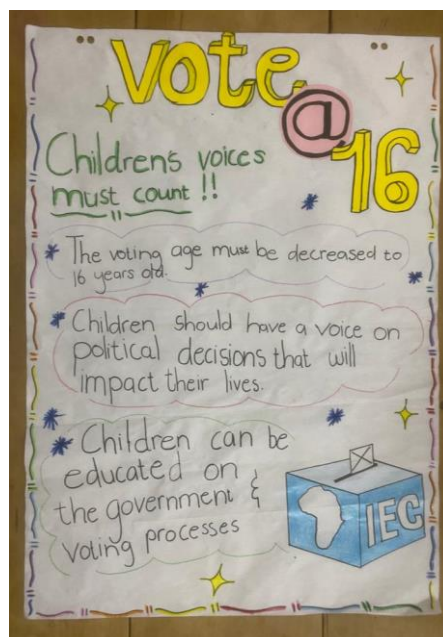 vote
@
16
Children's voices
must count !!
The voting age must be decreased to
16 years old.
Children should have a voice on
political decisions that will
impact their lives.
Children can be
educated on
the government &
voting processes
IEC